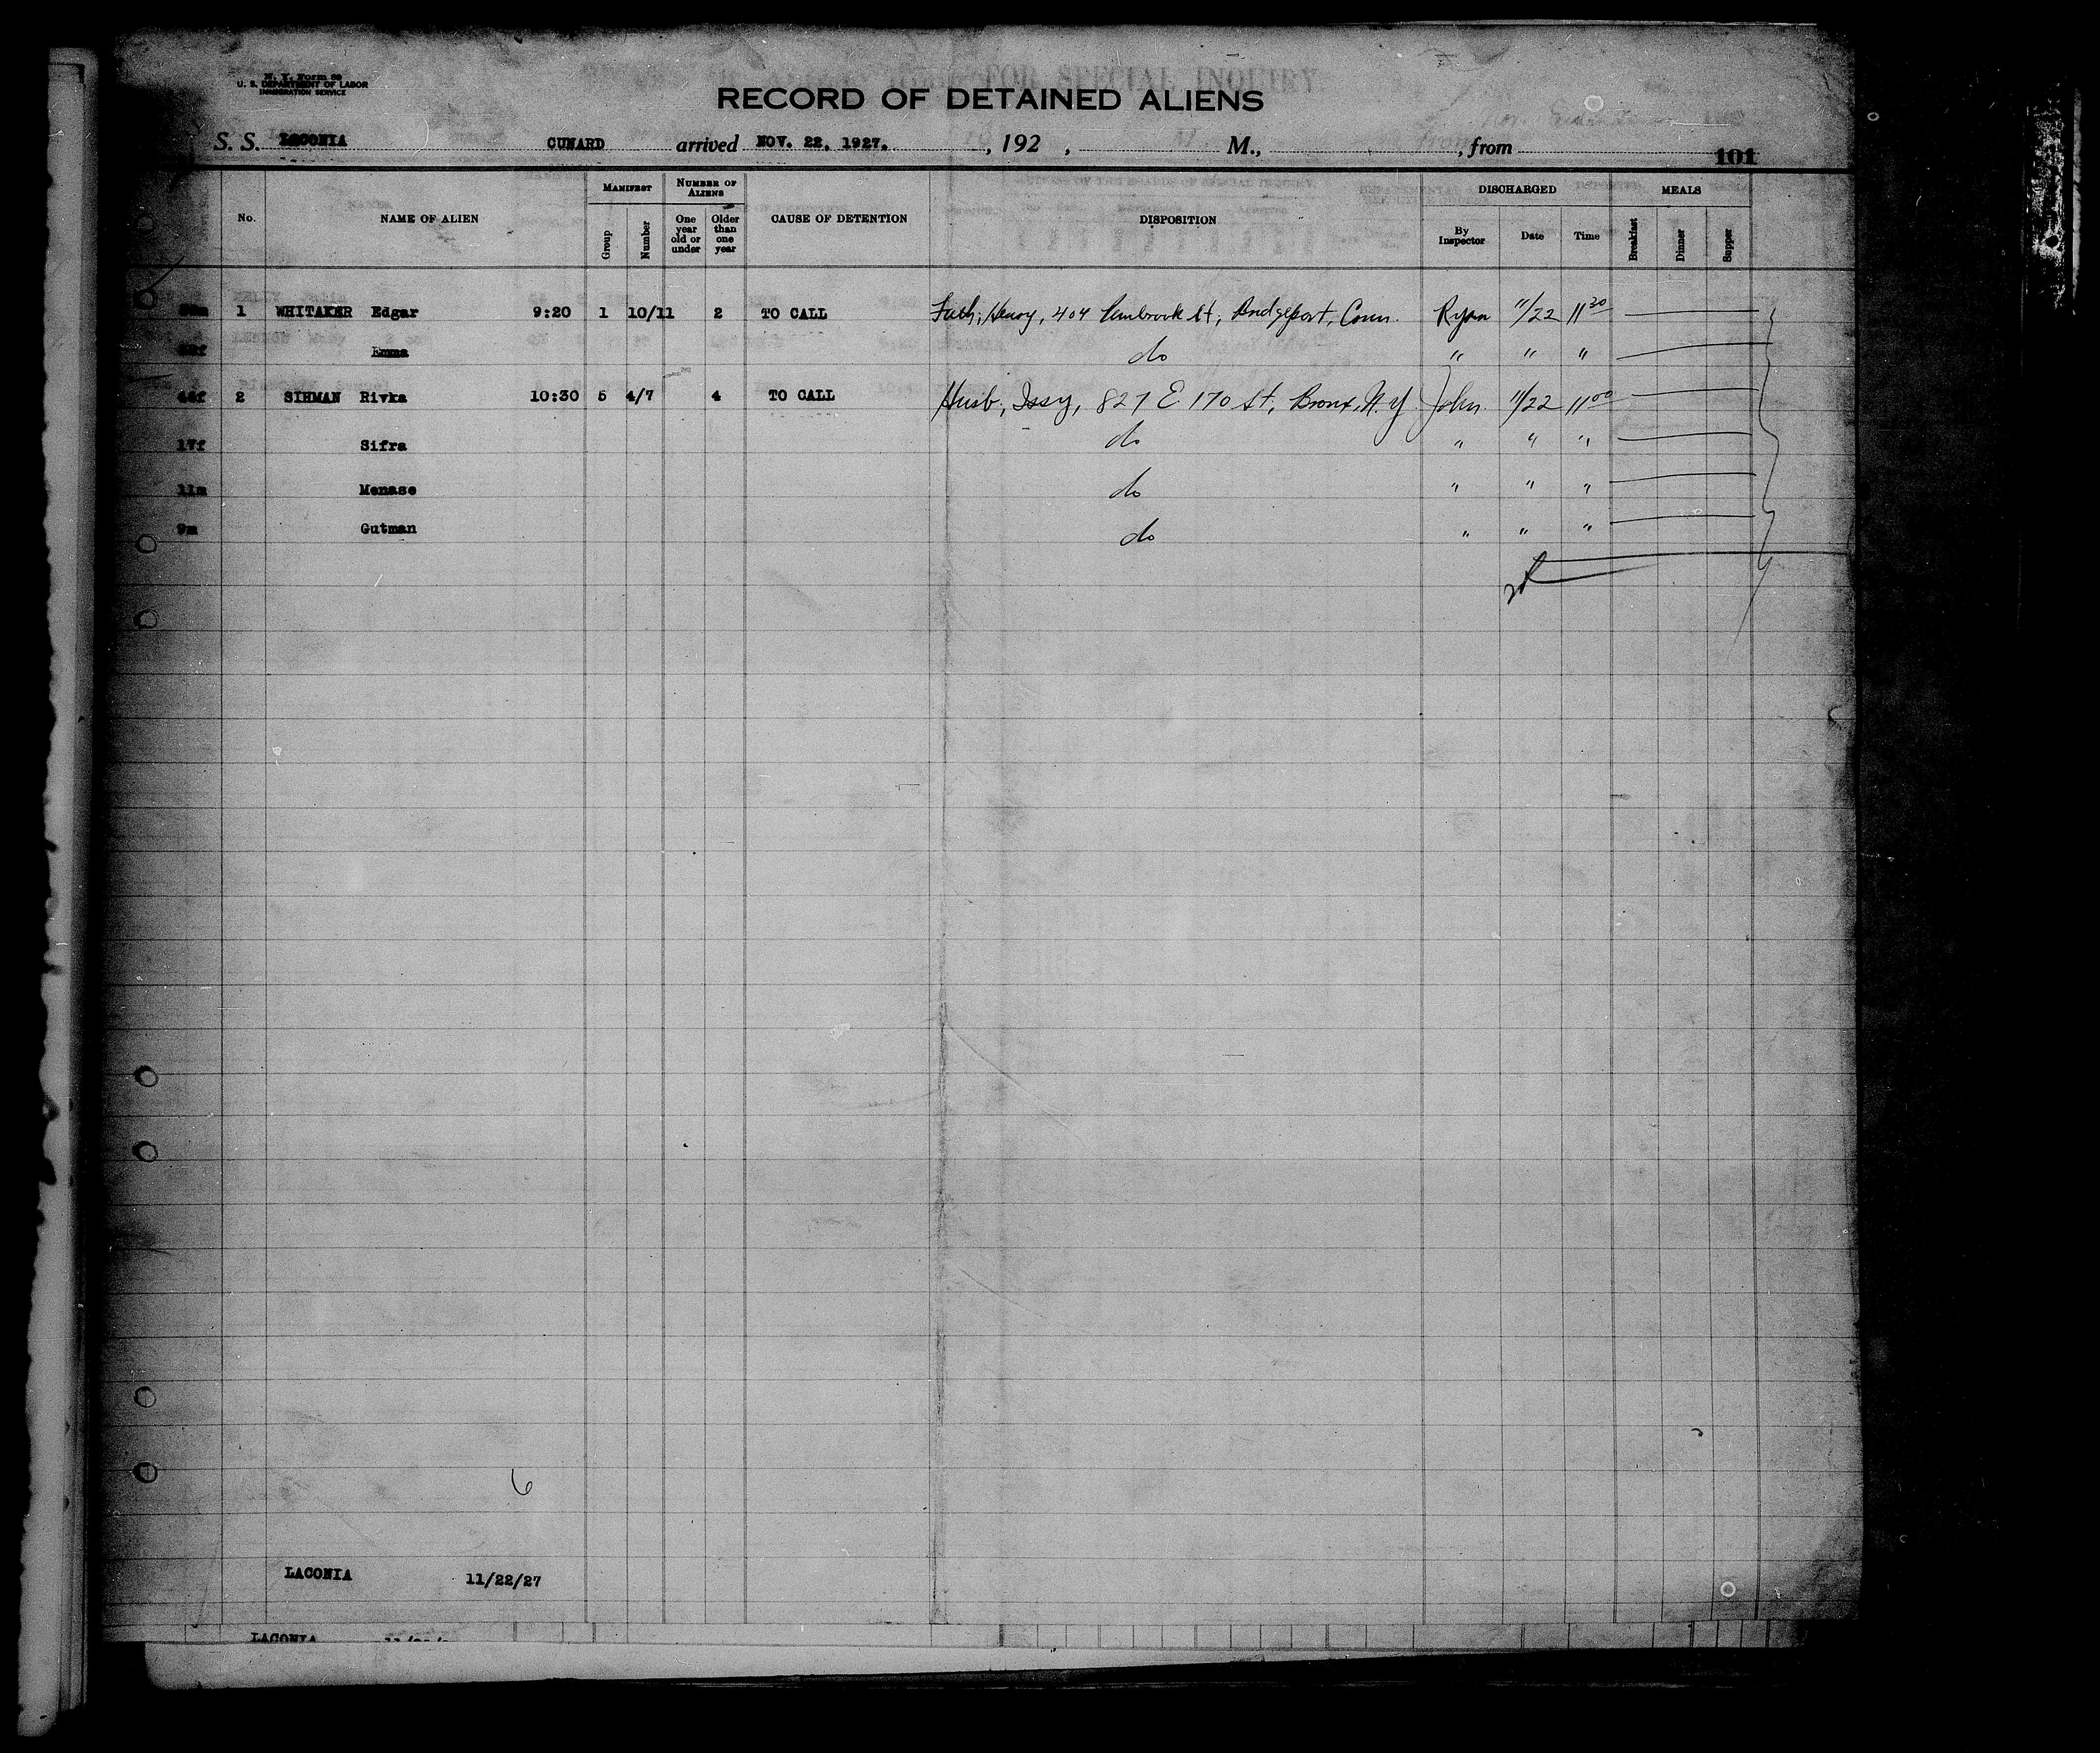 N. Y. Form 89
U. S. DEPARTMENT OF LABOR
IMMIGRATION SERVICE
FOR SPECIAL INQUIRY
RECORD OF DETAINED ALIENS
S. S. LACONIA CUNARD arrived NOV. 22, 1927. , 192 , M., , from
101
No. NAME OF ALIEN MANIFEST Group Number NUMBER OF ALIENS One year old or under Older than one year CAUSE OF DETENTION DISPOSITION DISCHARGED By Inspector Date Time MEALS Breakfast Dinner Supper
1 WHITAKER Edgar 9:20 1 10/11 2 TO CALL Fath, Henry, 404 Pembrook St, Bridgeport, Conn. Ryan 11/22 11 30
Emma do " " "
44f 2 SIHMAN Rivka 10:30 5 4/7 4 TO CALL Husb, Issy, 827 E 170 St, Bronx, N.Y. John. 11/22 11 00
17f Sifra do " " "
11m Menase do " " "
9m Gutman do " " "
6
LACONIA 11/22/27
LACONIA